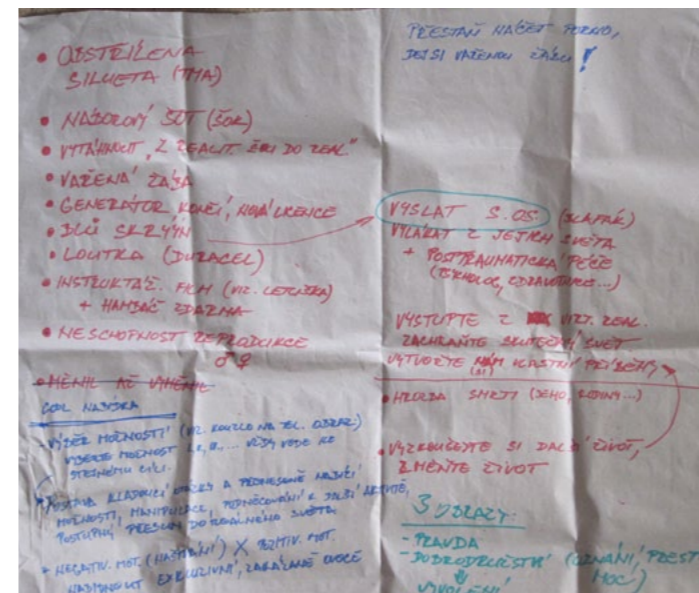 • ODSTŘELENÁ
SILUETA (TMA)
• NÁBOROVÝ ŠOT (ŠOK)
• VYTÁHNOUT „Z REALIT. DO REAL."
• VAŘENÁ ŽÁBA
• GENERÁTOR KONČÍ, NOVÁ LICENCE
• BLŮ SKRÝN
• LOUTKA (DURACEL)
• INSTRUKTÁŽ. FILM (VIZ. LETUŠKA)
+ HAMBÁČ ZDARMA
• NESCHOPNOST REPRODUKCE
♂♀
• MĚNIL AŽ VYMĚNIL
COOL NABÍDKA
- VÝBĚR MOŽNOSTÍ (VIZ. KOUZLO NA TEL. OBRAZ.)
VYBERTE MOŽNOST VŽDY VEDE KE
STEJNÉMU CÍLI.
POSTAVA KLADOUCÍ OTÁZKY A NABÍZÍ
MOŽNOSTI, MANIPULACE, PODNĚCOVÁNÍ K DALŠÍ AKTIVITĚ,
POSTUPNÝ PŘESUN DO REÁLNÉHO SVĚTA
+ NEGATIV. MOT. X POZITIV. MOT.
NABÍDNOUT EXKLUZIVNÍ, ZAKÁZANÉ OVOCE
PŘESTAŇ HÁČET PORNO,
JEJSI VAŘENOU ŽÁBU!
VYSLAT S.OS. (SLAFÁK)
VYLÁKAT Z JEJICH SVĚTA
+ POSTTRAUMATICKÁ PÉČE
(PSYCHOLOG, ...)
VYSTUPTE Z VIRT. REAL.
ZACHRAŇTE SKUTEČNÝ SVĚT
VYTVOŘTE (SI) VLASTNÍ PŘÍBĚH,
• HROZBA SMRTI (JEHO, RODINY...)
• VYZKOUŠEJTE SI DALŠÍ ŽIVOT,
ZMĚŇTE ŽIVOT
3 VZKAZY:
- PRAVDA
- DOBRODRUŽSTVÍ (UZNÁNÍ, PREST
MOC)
VYVOLENÍ